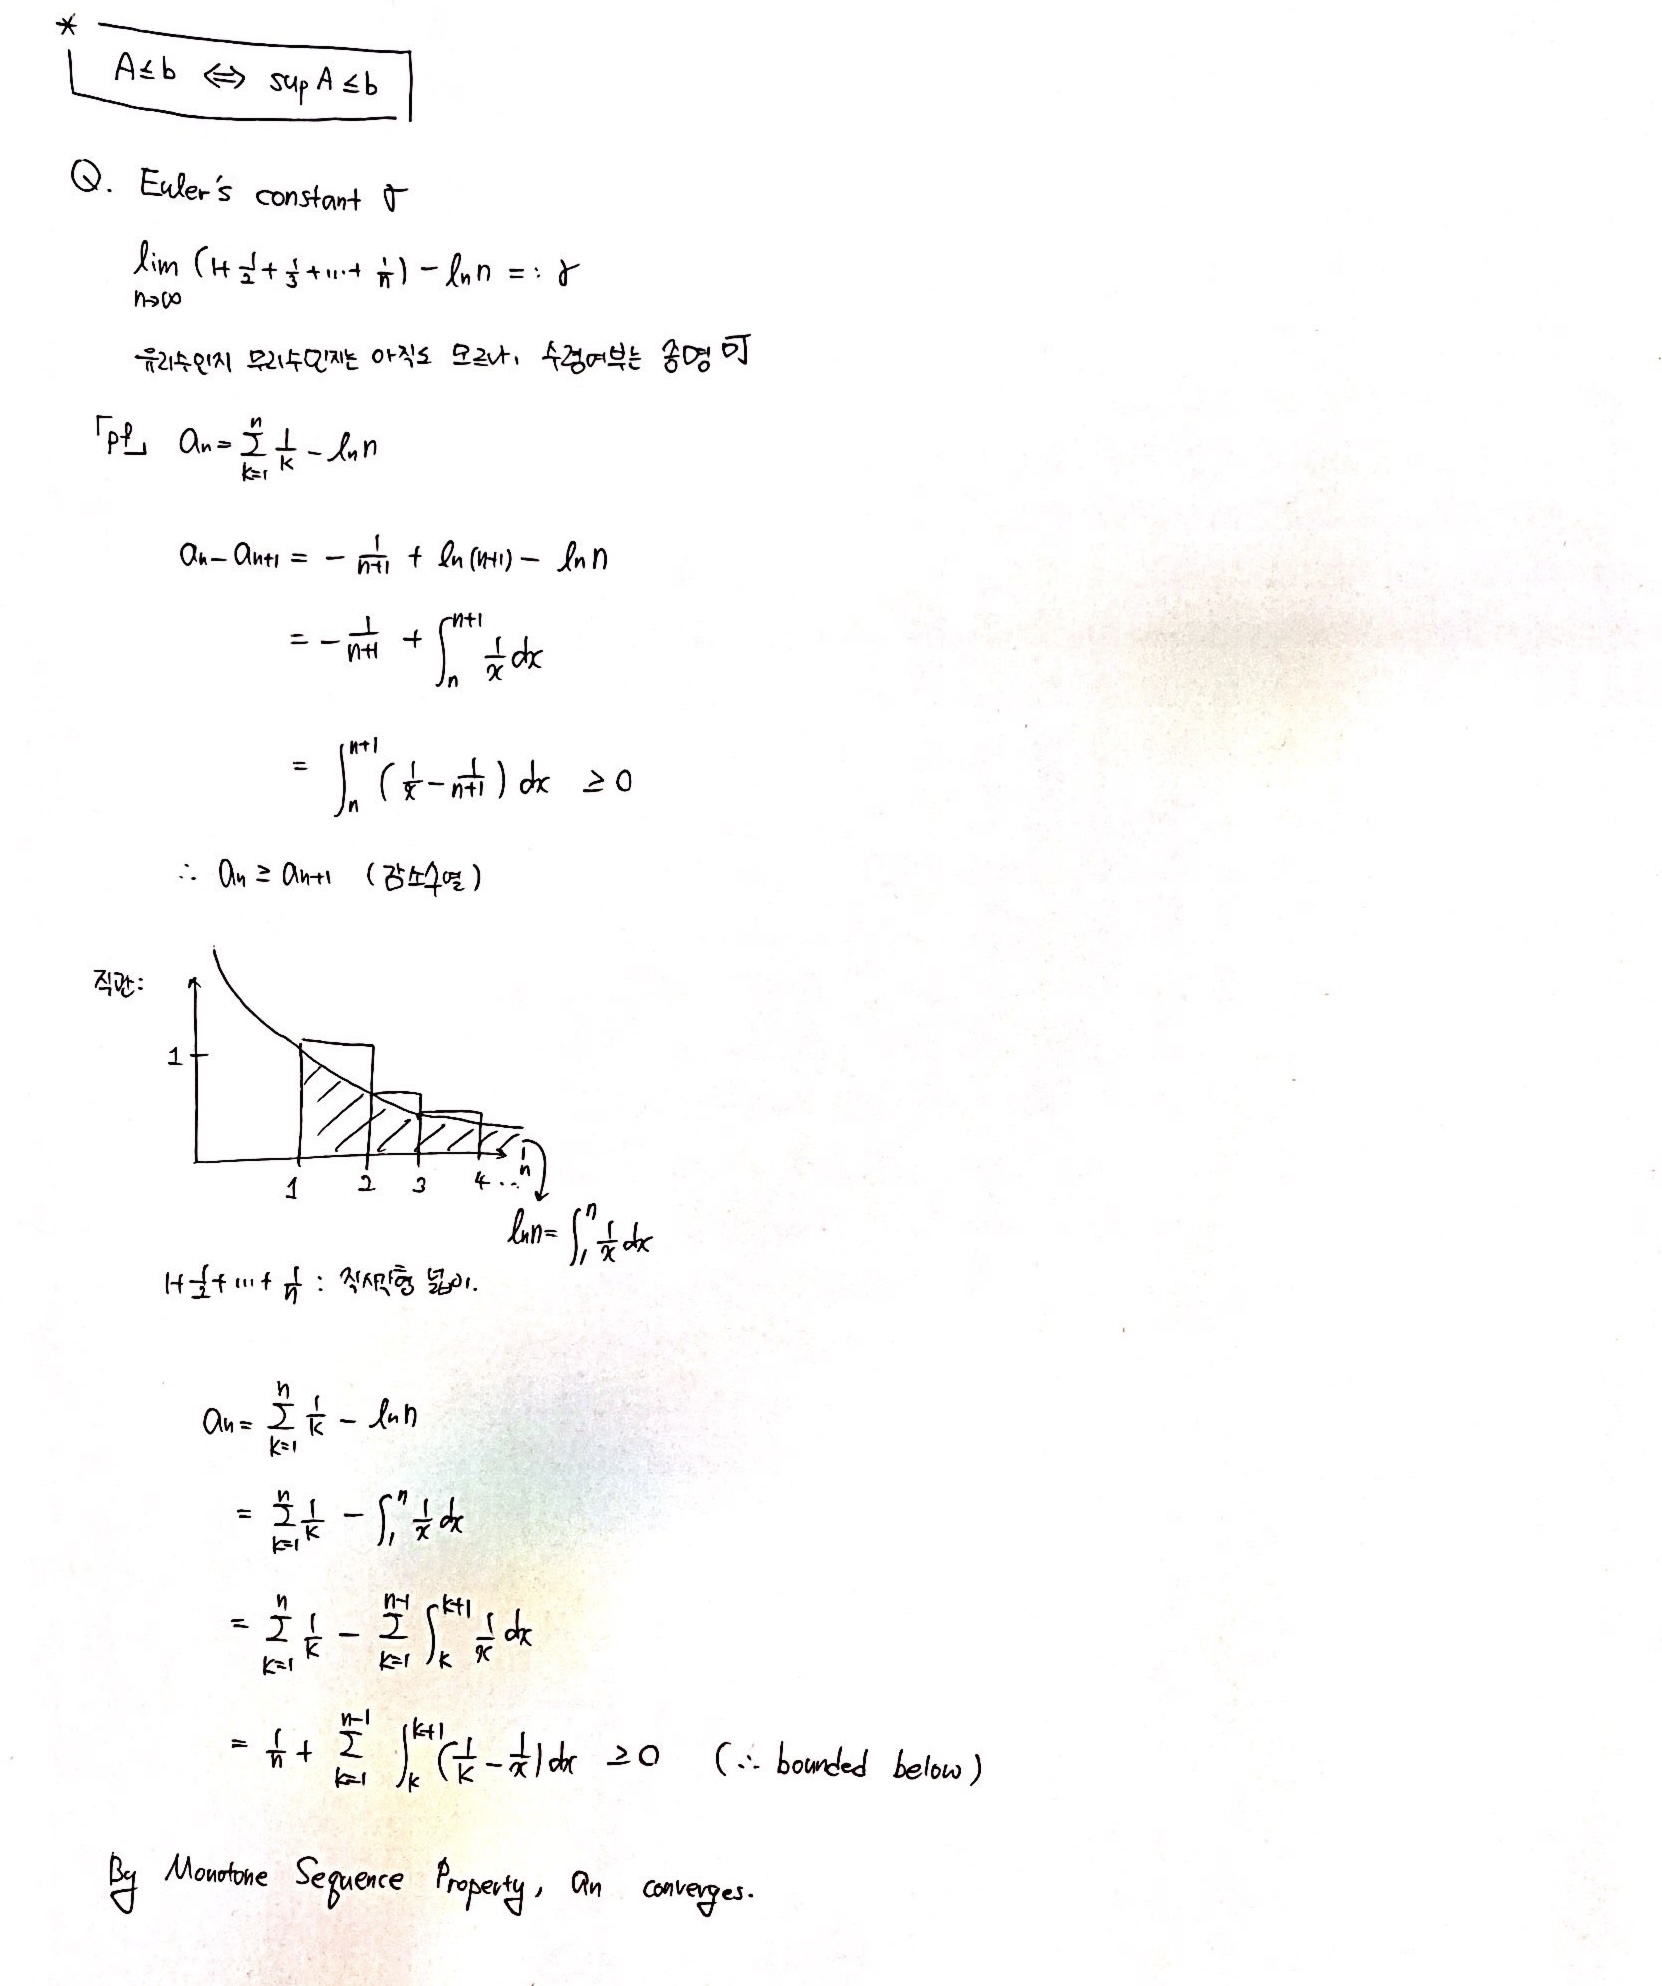 *
A≤b ⟺ sup A ≤b
Q. Euler's constant γ
lim_{n→∞} (1+1/2+1/3+...+1/n) - ln n =: γ
유리수인지 무리수인지는 아직도 모르나, 수렴여부는 증명 可
「pf」 a_n = Σ_{k=1}^{n} 1/k - ln n
a_n - a_{n+1} = - 1/(n+1) + ln(n+1) - ln n
= - 1/(n+1) + ∫_n^{n+1} 1/x dx
= ∫_n^{n+1} (1/x - 1/(n+1)) dx ≥ 0
∴ a_n ≥ a_{n+1} (감소수열)
직관:
1
1 2 3 4 ... n
ln n = ∫_1^n 1/x dx
1+1/2+...+1/n : 직사각형 넓이.
a_n = Σ_{k=1}^{n} 1/k - ln n
= Σ_{k=1}^{n} 1/k - ∫_1^n 1/x dx
= Σ_{k=1}^{n} 1/k - Σ_{k=1}^{n-1} ∫_k^{k+1} 1/x dx
= 1/n + Σ_{k=1}^{n-1} ∫_k^{k+1} (1/k - 1/x) dx ≥ 0 (∴ bounded below)
By Monotone Sequence Property, a_n converges.